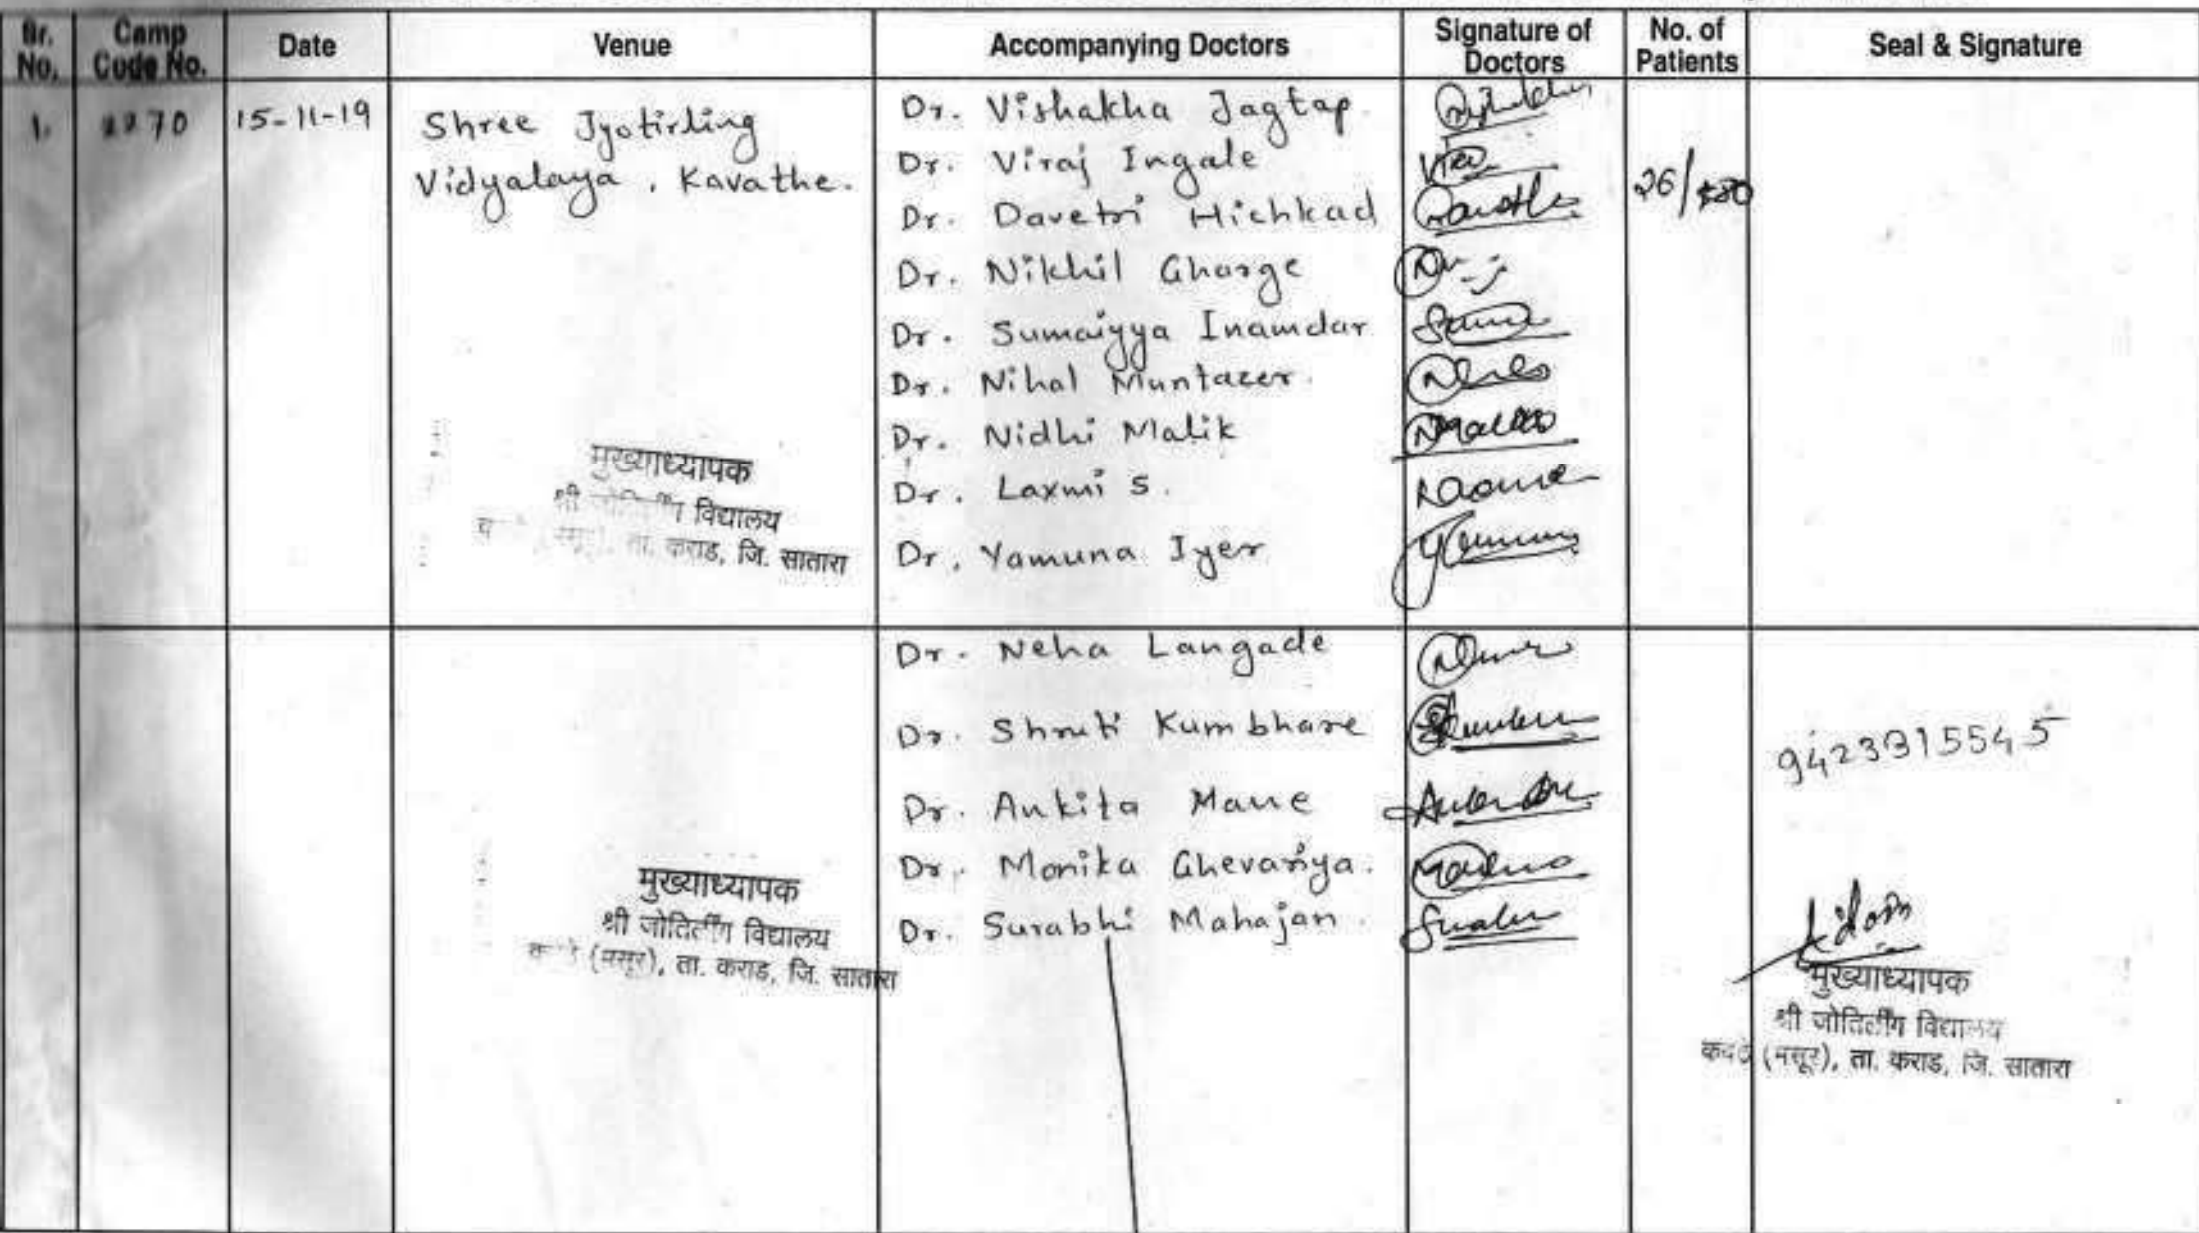 Sr. No. Camp Code No. Date Venue Accompanying Doctors Signature of Doctors No. of Patients Seal & Signature
1. 70 15-11-19 Shree Jyotirling
Vidyalaya, Kavathe.
Dr. Vishakha Jagtap
Dr. Viraj Ingale
Dr. Davetri Hichkad
Dr. Nikhil Gharge
Dr. Sumaiyya Inamdar
Dr. Nihal Muntazer
Dr. Nidhi Malik
Dr. Laxmi S.
Dr. Yamuna Iyer
26/
मुख्याध्यापक
श्री विद्यालय
ता. कराड, जि. सातारा
Dr. Neha Langade
Dr. Shruti Kumbhare
Dr. Ankita Mane
Dr. Monika Ghevariya.
Dr. Surabhi Mahajan
मुख्याध्यापक
श्री जोतिर्लींग विद्यालय
(मसूर), ता. कराड, जि. सातारा
9423315545
मुख्याध्यापक
श्री जोतिर्लींग विद्यालय
(मसूर), ता. कराड, जि. सातारा